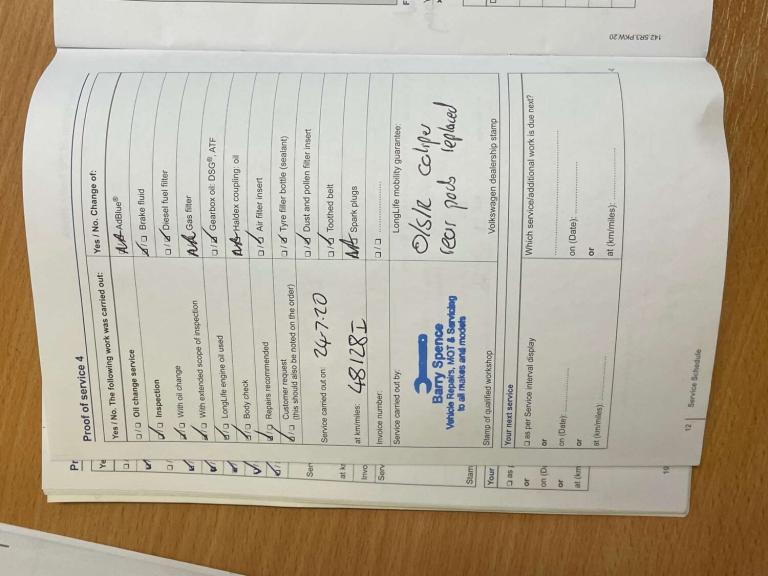 Proof of service 4
Yes / No. The following work was carried out:
Oil change service
Inspection
With oil change
With extended scope of inspection
LongLife engine oil used
Body check
Repairs recommended
Customer request
(this should also be noted on the order)
Service carried out on: 24-7-20
at km/miles: 48128
Invoice number:
Service carried out by:
Barry Spence
Vehicle Repairs, MOT & Servicing
to all makes and models
Stamp of qualified workshop
Yes / No. Change of:
NA AdBlue®
Brake fluid
Diesel fuel filter
NA Gas filter
Gearbox oil: DSG®, ATF
NA Haldex coupling: oil
Air filter insert
Tyre filler bottle (sealant)
Dust and pollen filter insert
Toothed belt
NA Spark plugs
LongLife mobility guarantee:
O/S/R caliper
rear pads replaced
Volkswagen dealership stamp
Your next service
as per Service interval display
or
on (Date):
or
at (km/miles):
Which service/additional work is due next?
on (Date):
or
at (km/miles):
12 Service Schedule
142.5R3.PKW.20
Pr
Ye
Ser
at k
Invo
Serv
Stam
Your
as
or
on (D
or
at (km